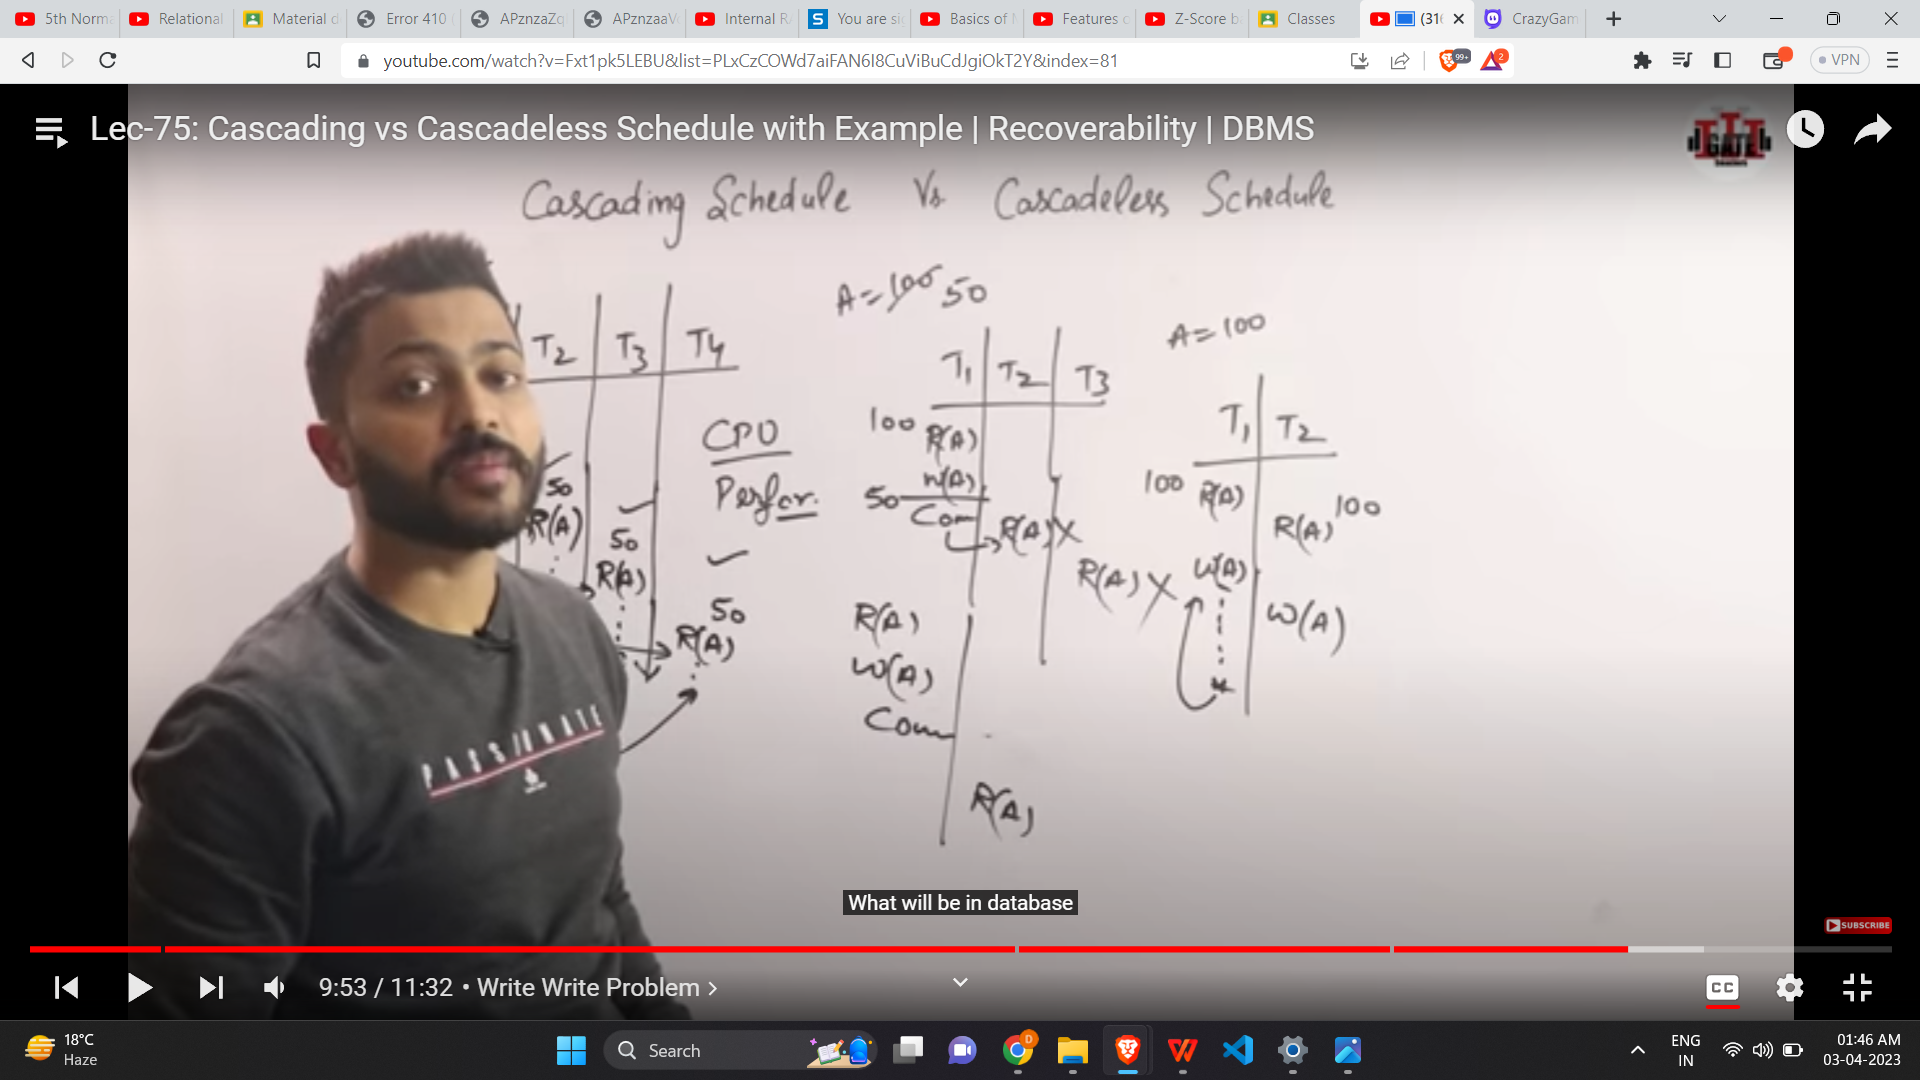 5th Norma
Relational
Material d
Error 410 (
APznzaZq
APznzaaV
Internal R
You are si
Basics of
Features o
Z-Score b
Classes
(316
CrazyGam
youtube.com/watch?v=Fxt1pk5LEBU&list=PLxCzCOWd7aiFAN6I8CuViBuCdJgiOkT2Y&index=81
99+
2
VPN
Lec-75: Cascading vs Cascadeless Schedule with Example | Recoverability | DBMS
GATE
Cascading Schedule Vs Cascadeless Schedule
A=100 50
A=100
T2 T3 T4
T1 T2 T3
T1 T2
CPU
Perfor.
50
R(A)
50
R(A)
50
R(A)
100 R(A)
W(A)
50
Com R(A) X
R(A) X
100 R(A)
R(A) 100
W(A)
W(A)
R(A)
W(A)
Com
R(A)
PASSIONATE
What will be in database
SUBSCRIBE
9:53 / 11:32 • Write Write Problem >
CC
18°C
Haze
Search
D
ENG
IN
01:46 AM
03-04-2023